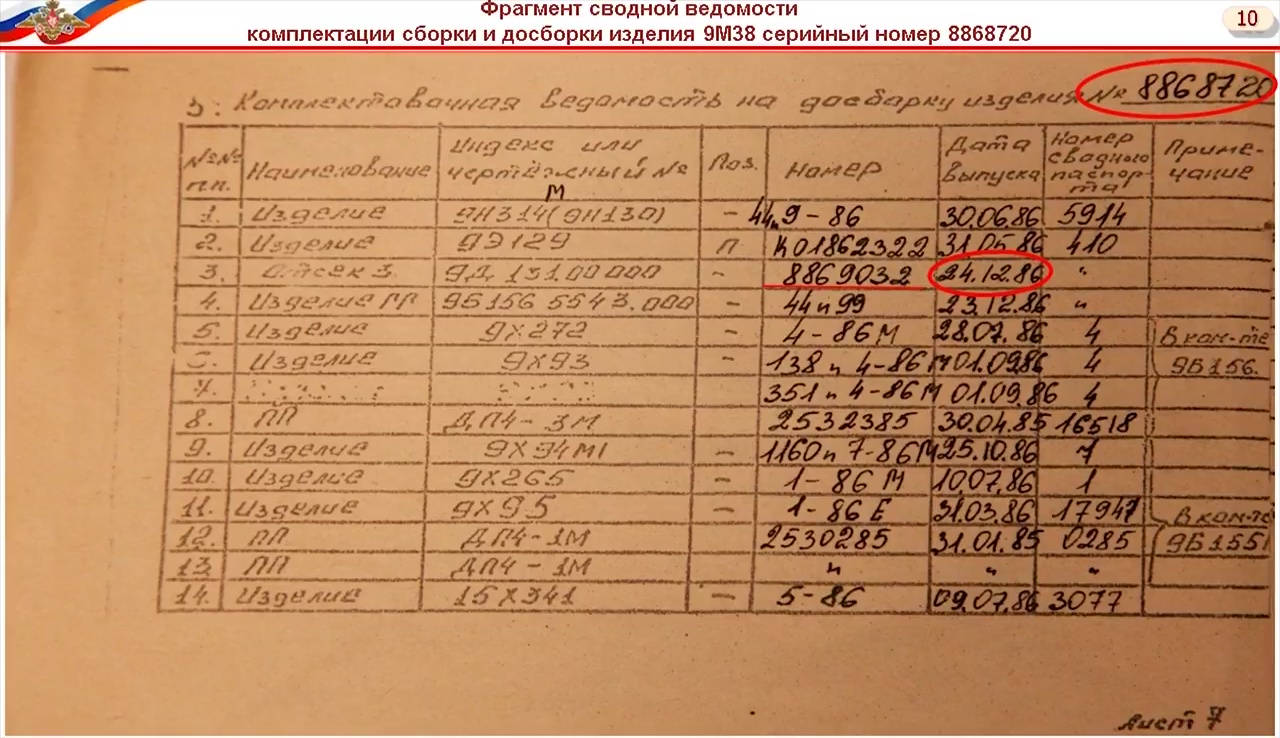 Фрагмент сводной ведомости
комплектации сборки и досборки изделия 9М38 серийный номер 8868720
10
3. Комплектовочная ведомость на досборку изделия № 8868720
№№ п.п. Наименование Индекс или чертёжный № Поз. Номер Дата выпуска Номер сводного паспорта Примечание
М
1. Изделие 9Н314(9Н130) - 44п9-86 30.06.86 5914
2. Изделие 9Э129 П К01862322 31.05.86 410
3. Отсек 3. 9Д 131.00 000 - 8869032 24.12.86 "
4. Изделие ГГ 9Б156 5543.000 - 44п99 23.12.86 "
5. Изделие 9Х272 - 4-86М 28.07.86 4 В ком-те
Изделие 9Х93 - 138п 4-86М 01.09.86 4 9Б156.
7. 351п 4-86М 01.09.86 4
8. ПП ДП4-3М 2532385 30.04.85 16518
9. Изделие 9Х94М1 - 1160п7-86М 25.10.86 1
10. Изделие 9Х265 - 1-86М 10.07.86 1
11. Изделие 9Х95 - 1-86Е 31.03.86 17947 В ком-те
12. ПП ДП4-1М 2530285 31.01.85 0285 9Б1551
13. ПП ДП4-1М " " "
14. Изделие 15Х341 - 5-86 09.07.86 3077
Лист 7